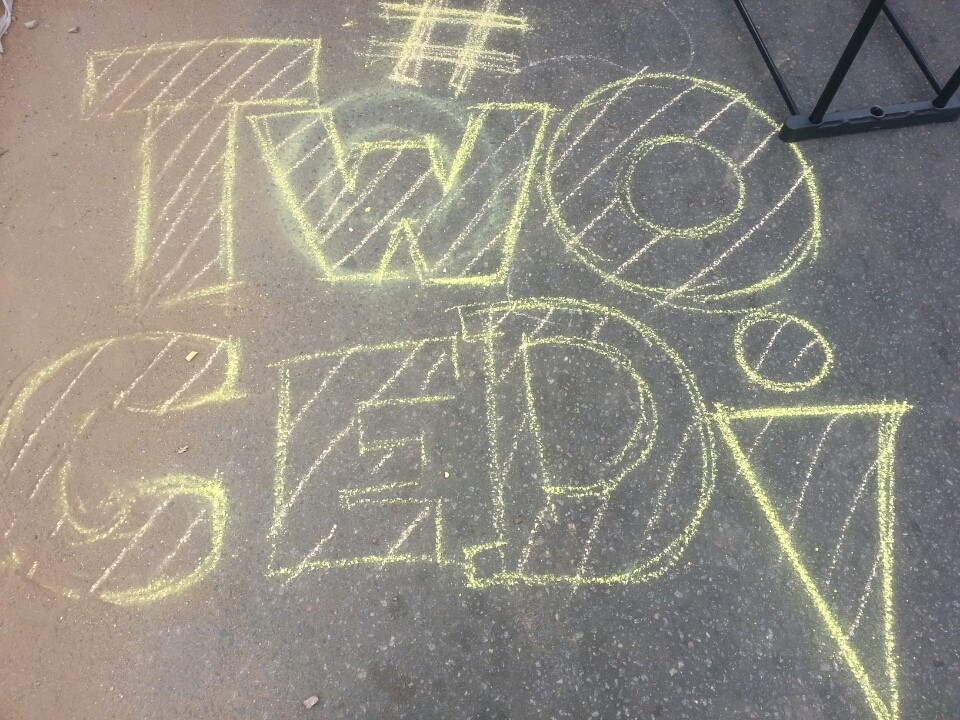 #
TWO
CEDi